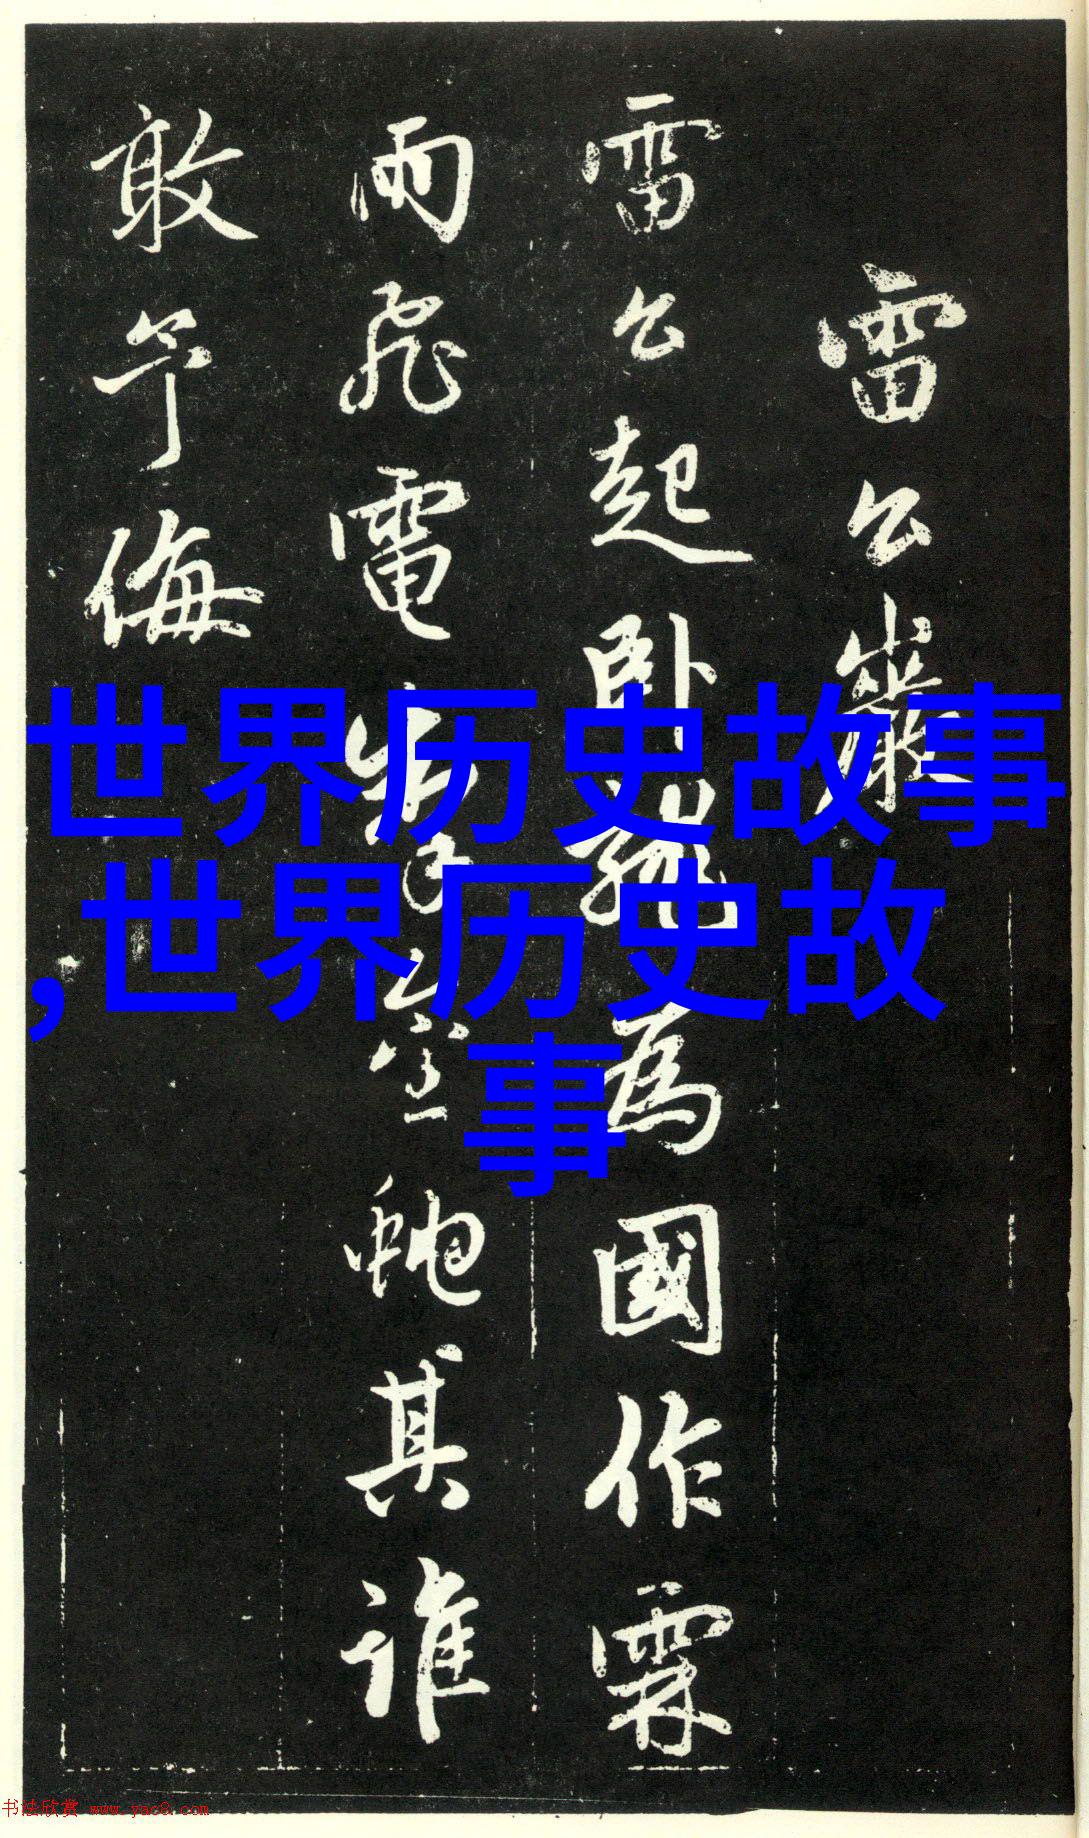 雷公巖
雷公起卧龍為國作霖
雨飛電掣金虵其誰
敢予侮
世界历史故事
,世界历史故
事
书法欣赏 www.yac8.com